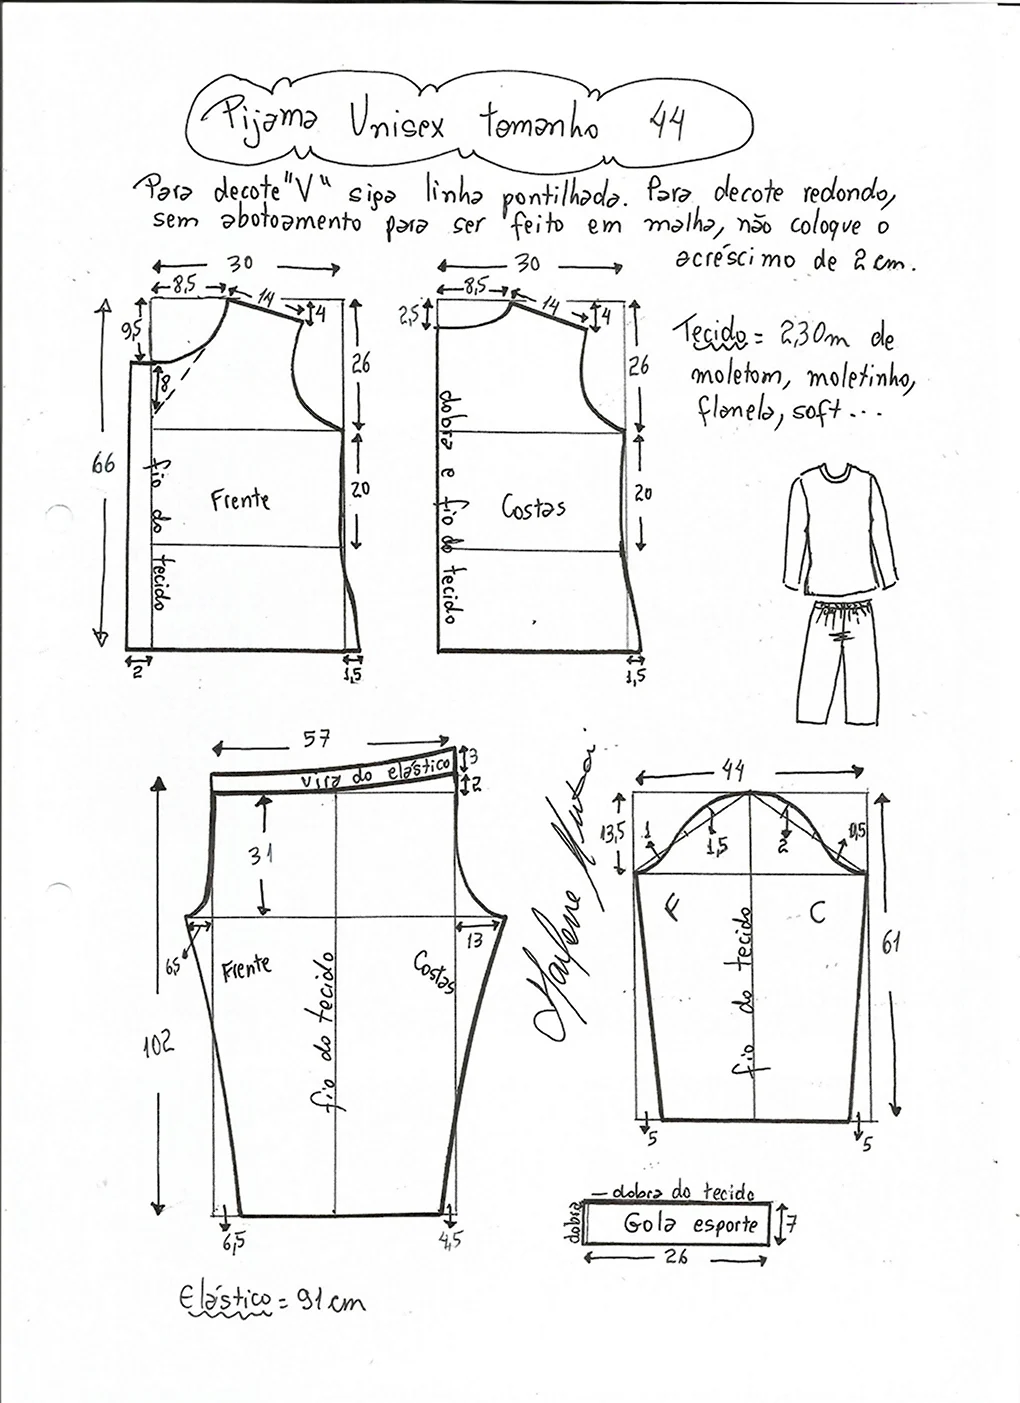 Pijama Unisex tamanho 44
Para decote "V" siga linha pontilhada. Para decote redondo,
sem abotoamento para ser feito em malha, não coloque o
acréscimo de 2 cm.
30
8,5
14
4
9,5
8
26
66
20
fio do tecido
Frente
2
1,5
30
8,5
14
4
2,5
26
20
dobra e fio do tecido
Costas
1,5
Tecido = 2,30m de
moletom, moletinho,
flanela, soft...
57
3
vira do elástico
2
31
13
6,5
Frente
Costas
fio do tecido
102
6,5
4,5
44
13,5
1
1,5
2
0,5
F
C
fio do tecido
61
5
5
dobra do tecido
dobra
Gola esporte
7
26
Elástico = 91 cm